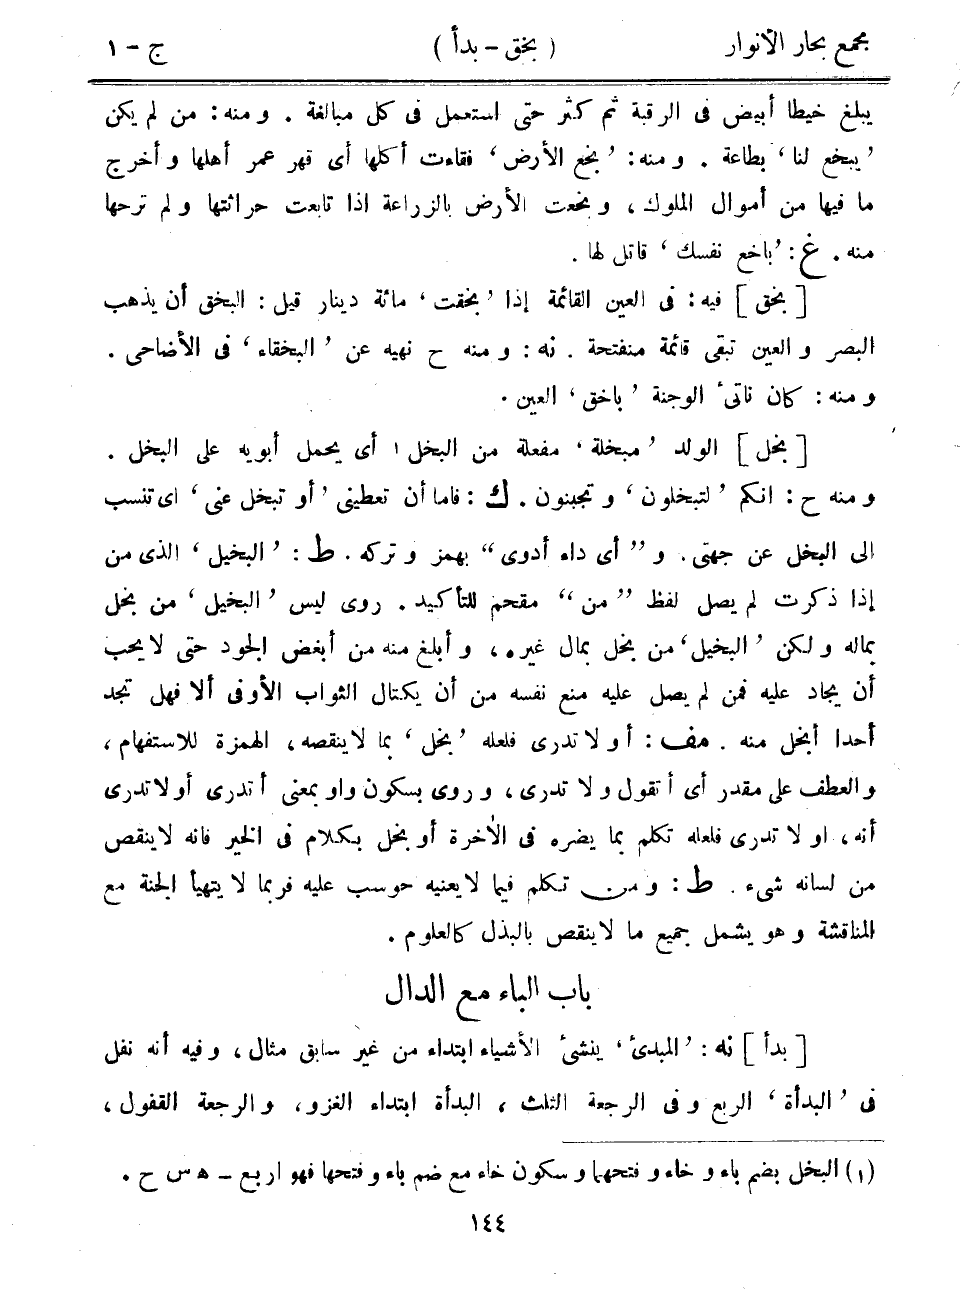 مجمع بحار الأنوار ( بخق - بدأ ) ج - ١
يبلغ خيطا أبيض فى الرقبة ثم كثر حتى استعمل فى كل مبالغة . و منه : من لم يكن
’يبخع لنا‘ بطاعة . و منه : ’بخع الأرض‘ فقاءت أكلها أى قهر عمر أهلها و أخرج
ما فيها من أموال الملوك ، و بخعت الأرض بالزراعة اذا تابعت حراثتها و لم ترحها
منه . غ : ’باخع نفسك‘ قاتل لها .
[ بخق ] فيه : فى العين القائمة إذا ’بخقت‘ مائة دينار قيل : البخق أن يذهب
البصر و العين تبقى قائمة منفتحة . نه : و منه ح نهيه عن ’البخقاء‘ فى الأضاحى .
و منه : كان ناتئ الوجنة ’باخق‘ العين .
[ بخل ] الولد ’مبخلة‘ مفعلة من البخل ١ أى يحمل أبويه على البخل .
و منه ح : انكم ’لتبخلون‘ و تجبنون . ك : فاما أن تعطينى ’أو تبخل عنى‘ اى تنسب
الى البخل عن جهتى . و ”أى داء أدوى“ بهمز و تركه . ط : ’البخيل‘ الذى من
إذا ذكرت لم يصل لفظ ”من“ مقحم للتأكيد . روى ليس ’البخيل‘ من بخل
بماله و لكن ’البخيل‘ من بخل بمال غيره ، و أبلغ منه من أبغض الجود حتى لا يحب
أن يجاد عليه فمن لم يصل عليه منع نفسه من أن يكتال الثواب الأوفى ألا فهل تجد
أحدا أبخل منه . مف : أو لا تدرى فلعله ’بخل‘ بما لا ينقصه ، الهمزة للاستفهام ،
و العطف على مقدر أى أتقول و لا تدرى ، و روى بسكون واو بمعنى أتدرى أو لا تدرى
أنه ، او لا تدرى فلعله تكلم بما يضره فى الأخرة أو بخل بكلام فى الخير فانه لا ينقص
من لسانه شىء . ط : و من تكلم فيما لا يعنيه حوسب عليه فربما لا يتهيأ الجنة مع
المناقشة و هو يشمل جميع ما لا ينقص بالبذل كالعلوم .
باب الباء مع الدال
[ بدأ ] نه : ’المبدئ‘ ينشئ الأشياء ابتداء من غير سابق مثال ، و فيه أنه نفل
فى ’البدأة‘ الربع و فى الرجعة الثلث ، البدأة ابتداء الغزو ، و الرجعة القفول ،
(١) البخل بضم باء و خاء و فتحهما و سكون خاء مع ضم باء و فتحها فهو اربع - ه س ح .
١٤٤